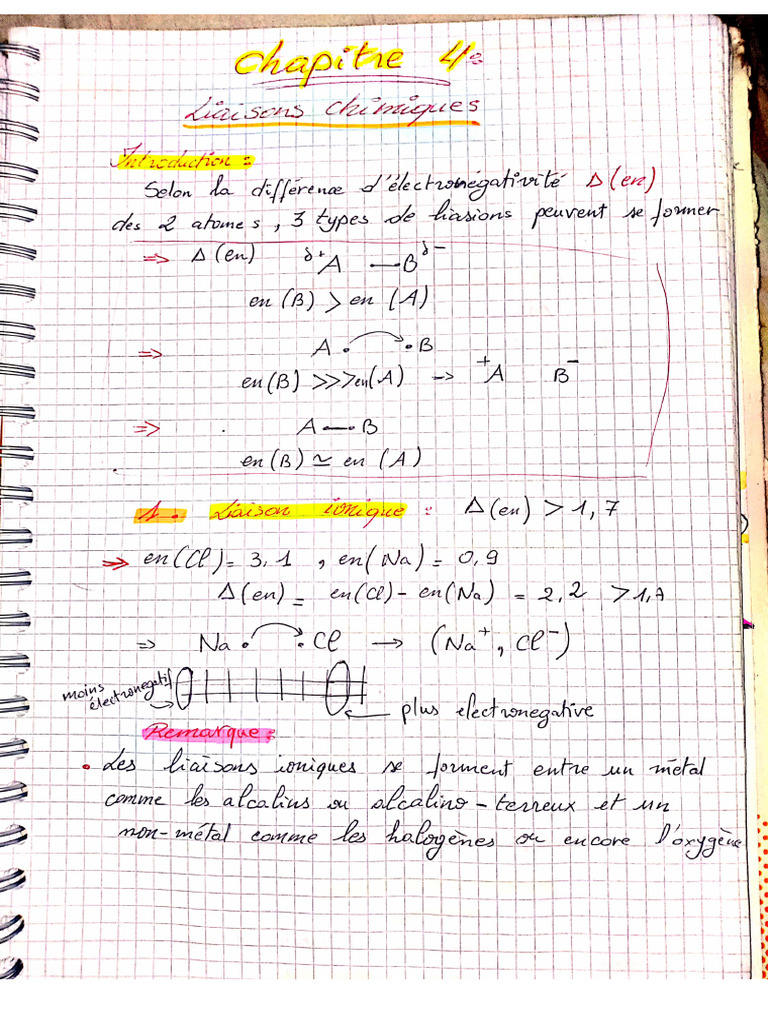 Chapitre 4:
Liaisons chimiques
Introduction:
Selon la différence d'électronégativité Δ(en)
des 2 atomes, 3 types de liasions peuvent se former
⇒ Δ(en) δ+A —Bδ-
en(B) > en (A)
⇒ A. .B
en(B) >>>en(A) → +A B-
⇒ A—B
en(B) ≃ en (A)
1. Liaison ionique: Δ(en) > 1,7
⇒ en(Cl) = 3,1 , en(Na) = 0,9
Δ(en) = en(Cl) - en(Na) = 2,2 > 1,7
⇒ Na. .Cl → (Na+, Cl-)
moins
électronegatif
plus electronegative
Remarque:
• Les liaisons ioniques se forment entre un métal
comme les alcalins ou alcalino-terreux et un
non-métal comme les halogènes ou encore l'oxygène